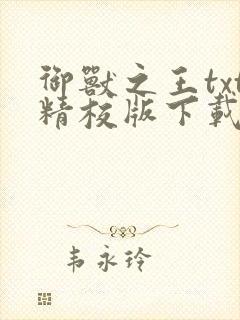 御獸之王txt
精校版下載
韦永玲